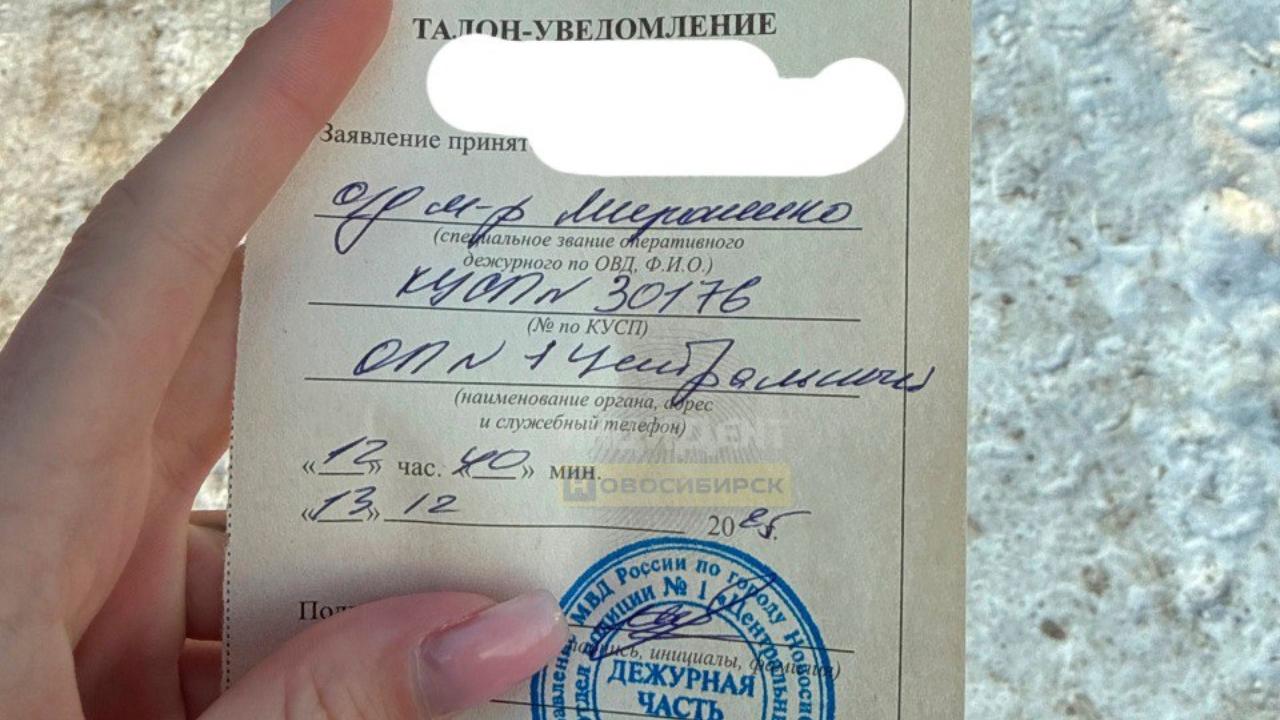 ТАЛОН-УВЕДОМЛЕНИЕ
Заявление принят
о/д м-р Мирошенко
(специальное звание оперативного
дежурного по ОВД, Ф.И.О.)
КУСП N 30176
(№ по КУСП)
ОП N 1 Центральный
(наименование органа, адрес
и служебный телефон)
«12» час. «40» мин.
НОВОСИБИРСК
«13» 12 2025.
МВД России по городу Новосиб
отдел полиции № 1 «Центральны
подпись, инициалы, фамилия)
ДЕЖУРНАЯ
ЧАСТЬ